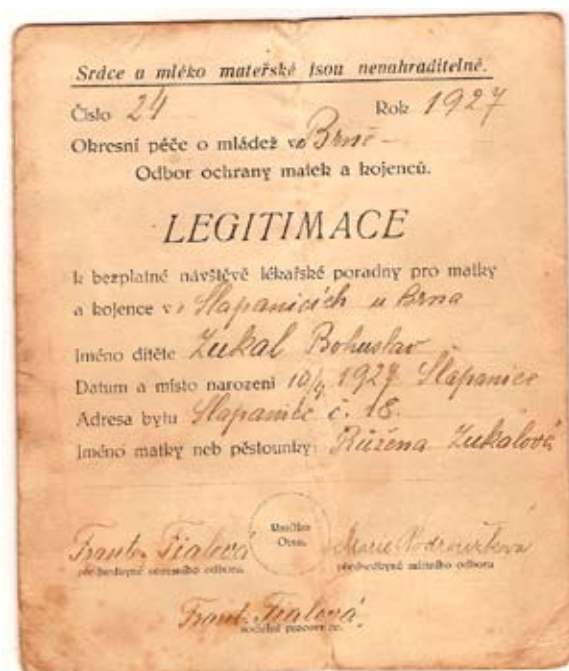 Srdce a mléko mateřské jsou nenahraditelné.
Číslo 24 Rok 1927
Okresní péče o mládež v Brně
Odbor ochrany matek a kojenců.
LEGITIMACE
k bezplatné návštěvě lékařské poradny pro matky
a kojence v Šlapanicích u Brna
Jméno dítěte Zukal Bohuslav
Datum a místo narození 10/4 1927 Šlapanice
Adresa bytu Šlapanice č. 18.
Jméno matky neb pěstounky: Růžena Zukalová
Frant. Fialová Marie
předsedkyně okresního odboru. předsedkyně místního odboru
Frant. Fialová.
sociální pracovnice.